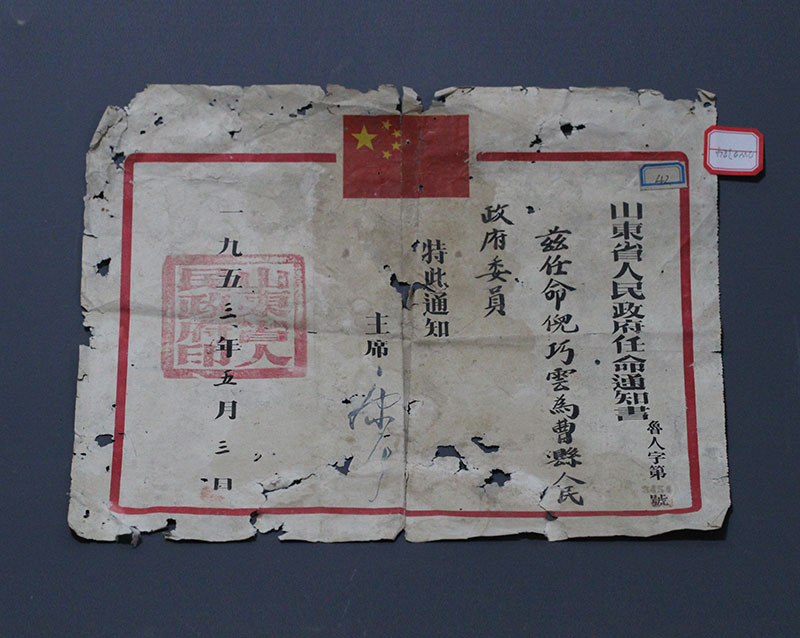 山東省人民政府任命通知書
魯人字第
號
兹任命倪巧雲為曹縣人民
政府委員
特此通知
主席
一九五三年五月三日
山東省人
民政府印
142